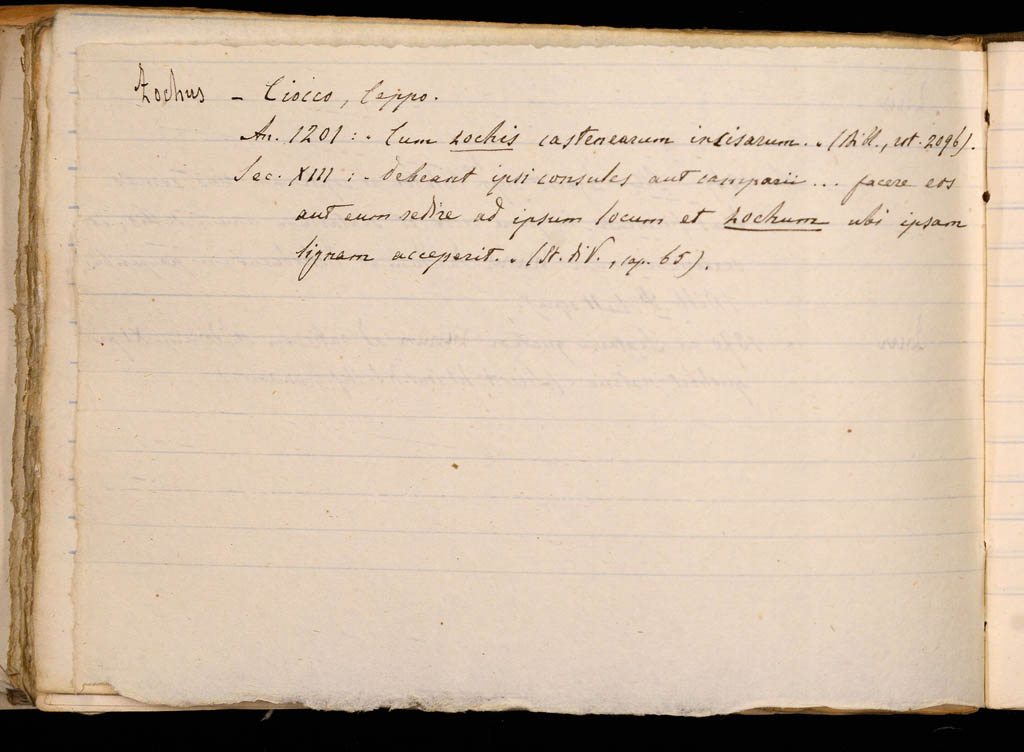 Zochus – Ciocco, Ceppo.
An. 1201 : . Cum zochis castenearum incisarum. . (Bibl., rot. 2096).
Sec. XIII : . Debeant ipsi consules aut camparii ... facere eos
aut eum redire ad ipsum locum et zochum ubi ipsam
lignam acceperit. . (St. div., cap. 65).